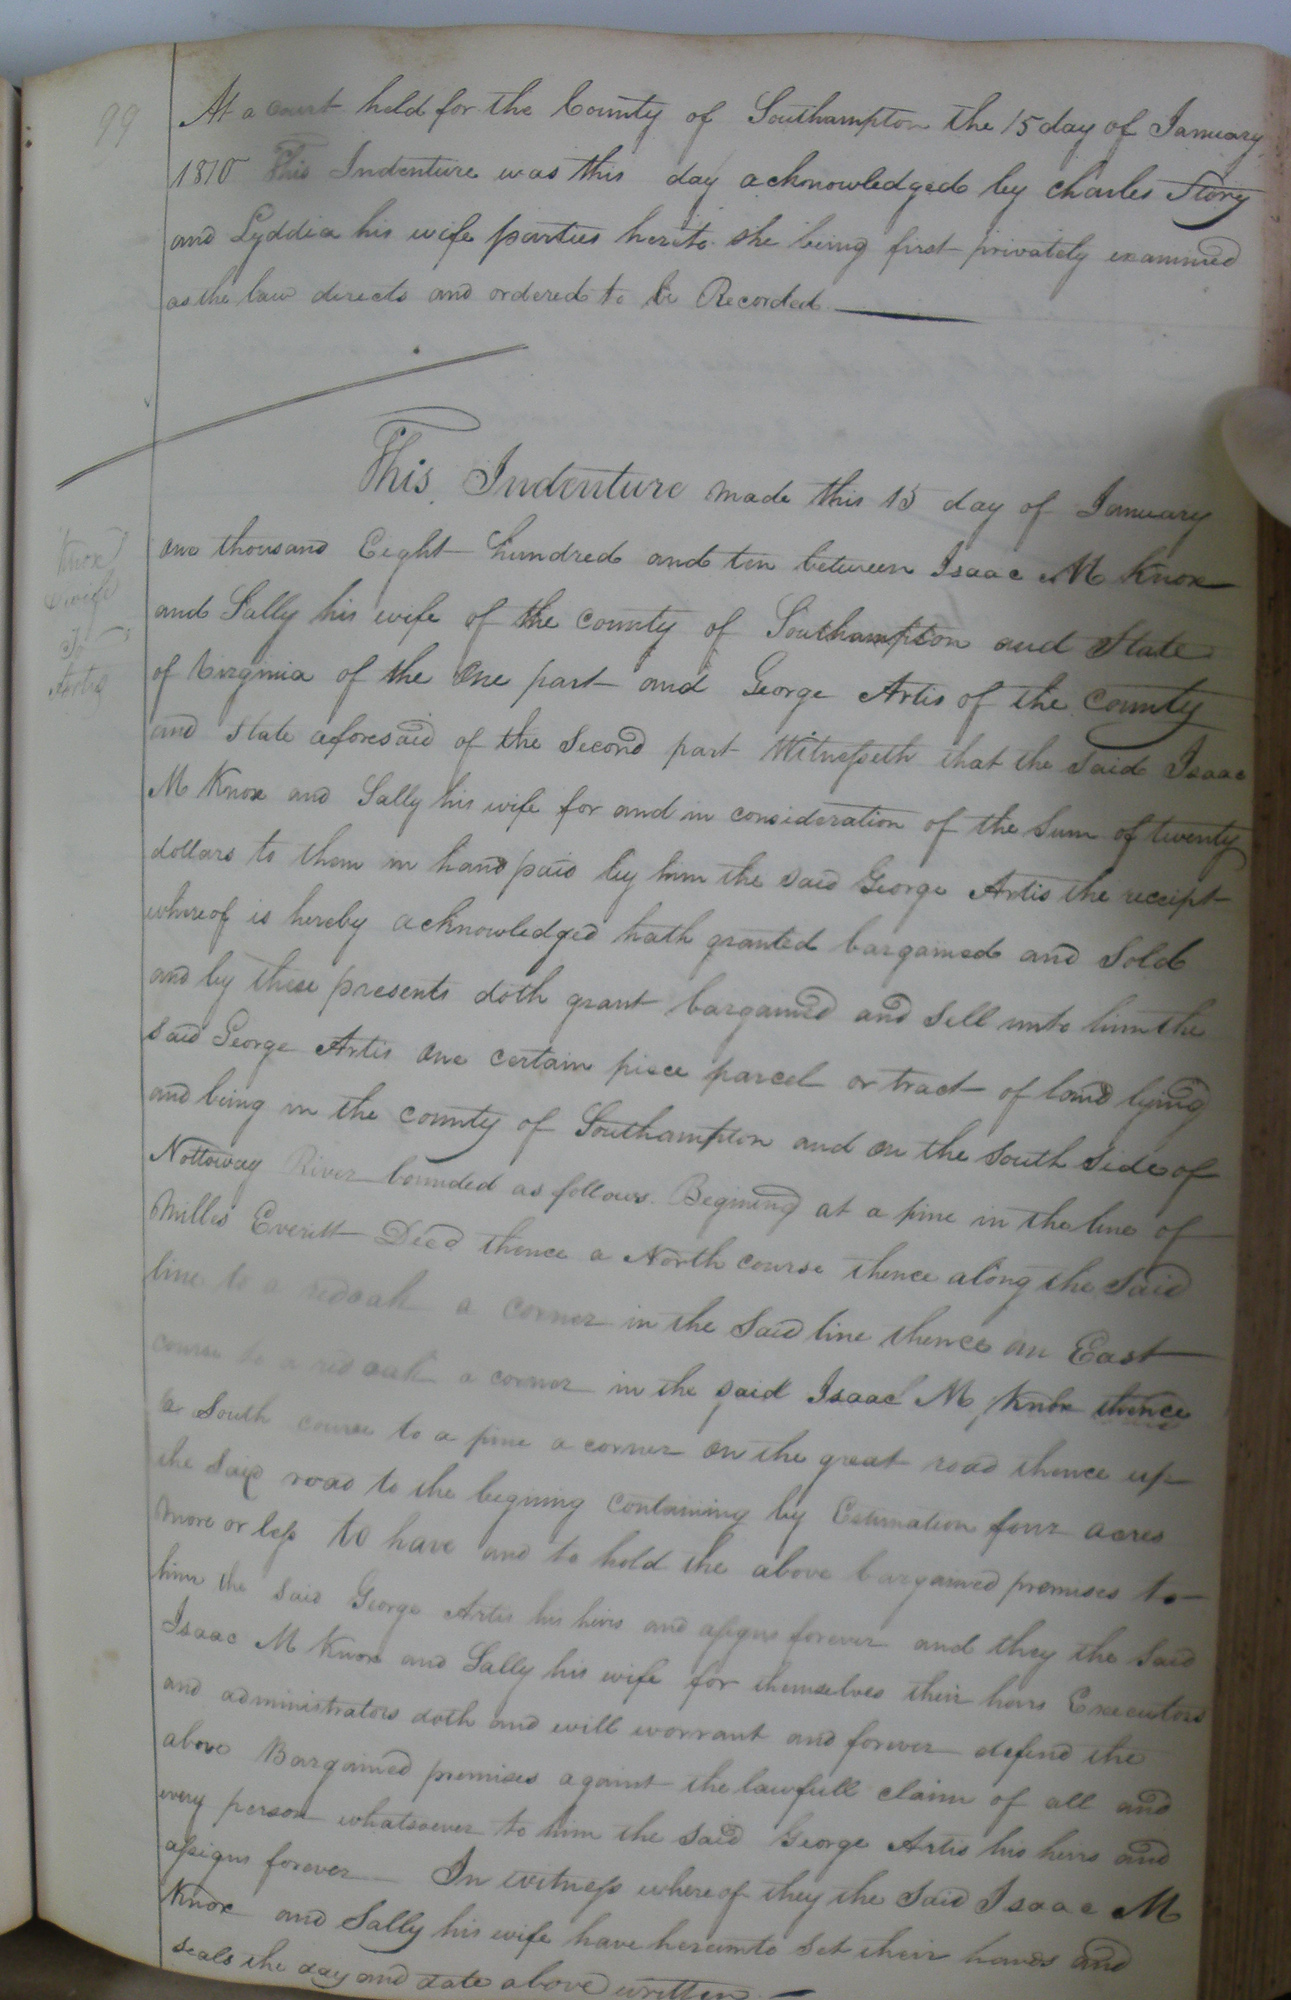 99
At a court held for the County of Southampton the 15 day of January
1810 This Indenture was this day acknowledged by Charles Story
and Lyddia his wife parties hereto she being first privately examined
as the law directs and ordered to be Recorded
Knox
& wife
To
Artis
This Indenture made this 15 day of January
one thousand Eight hundred and ten between Isaac M Knox
and Sally his wife of the County of Southampton and State
of Virginia of the One part and George Artis of the County
and State aforesaid of the Second part Witnesseth that the said Isaac
M Knox and Sally his wife for and in consideration of the Sum of twenty
dollars to them in hand paid by him the said George Artis the receipt
whereof is hereby acknowledged hath granted bargained and Sold
and by these presents doth grant bargained and Sell unto him the
said George Artis One certain piece parcel or tract of land lying
and being in the county of Southampton and on the South Side of
Nottoway River bounded as follows. Begining at a pine in the line of
Milles Everitt Decd thence a North course thence along the Said
line to a redoak a corner in the Said line thence an East
course to a red oak a corner in the said Isaac M Knox thence
a South course to a pine a corner on the great road thence up
the said road to the begining containing by Estimation four acres
more or less to have and to hold the above bargained premises to
him the Said George Artis his heirs and assigns forever and they the Said
Isaac M Knox and Sally his wife for themselves their heirs Executors
and administrators doth and will warrant and forever defend the
above Bargained premises against the lawfull claim of all and
every person whatsoever to him the Said George Artis his heirs and
assigns forever In witness whereof they the Said Isaac M
Knox and Sally his wife have hereunto Set their hands and
seals the day and date above written